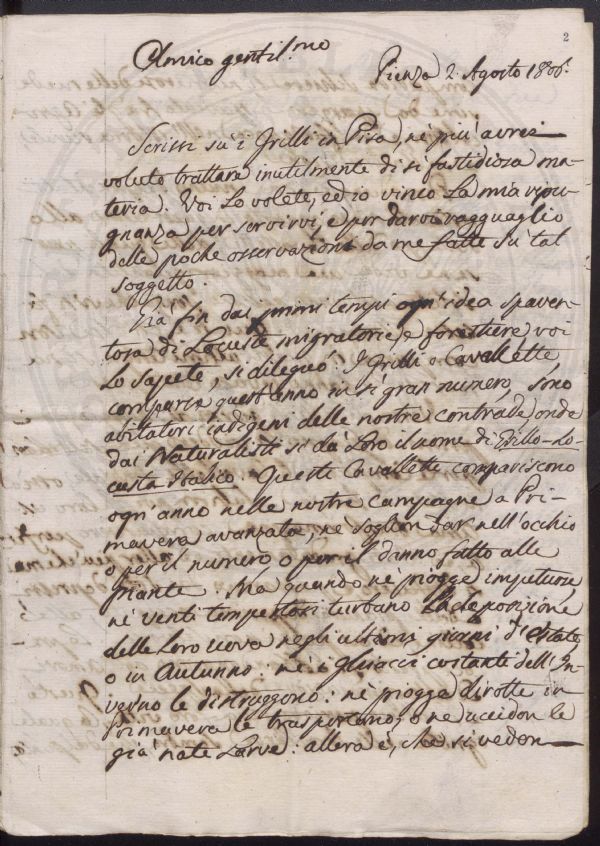 2
Amico gentil.mo
Pienza 2. Agosto 1806.
Scrissi su' i Grilli in Pisa, nè più avrei
voluto trattare inutilmente di si fastidiosa ma-
teria. Voi Lo volete, ed io vinco La mia ripu-
gnanza per servirvi, e per darvi ragguaglio
delle poche osservazioni da me fatte su tal
soggetto.
Già fin dai primi tempi ogn'idea spaven-
tosa di Locuste migratorie, e forestiere voi
Lo sapete, si dileguò. I Grilli o Cavallette
comparse quest'anno in si gran numero, sono
abitatori indigeni delle nostre contrade, onde
dai Naturalisti si dà Loro il nome di Grillo-Lo-
custa Italico. Questi Cavallette compariscono
ogn'anno nelle nostre campagne a Pri-
mavera avanzata, nè soglion dar nell'occhio
o per il numero o per il danno fatto alle
piante. Ma quando nè piogge impetuose
nè venti tempestosi turbano La deposizione
delle Loro uova negli ultimi giorni d'Estate,
o in Autunno: nè i Ghiacci costanti dell'In-
verno le distruggono: nè piogge dirotte in
primavera le trasportano, o ne uccidon le
già nate Larve: allora è, che si vedon